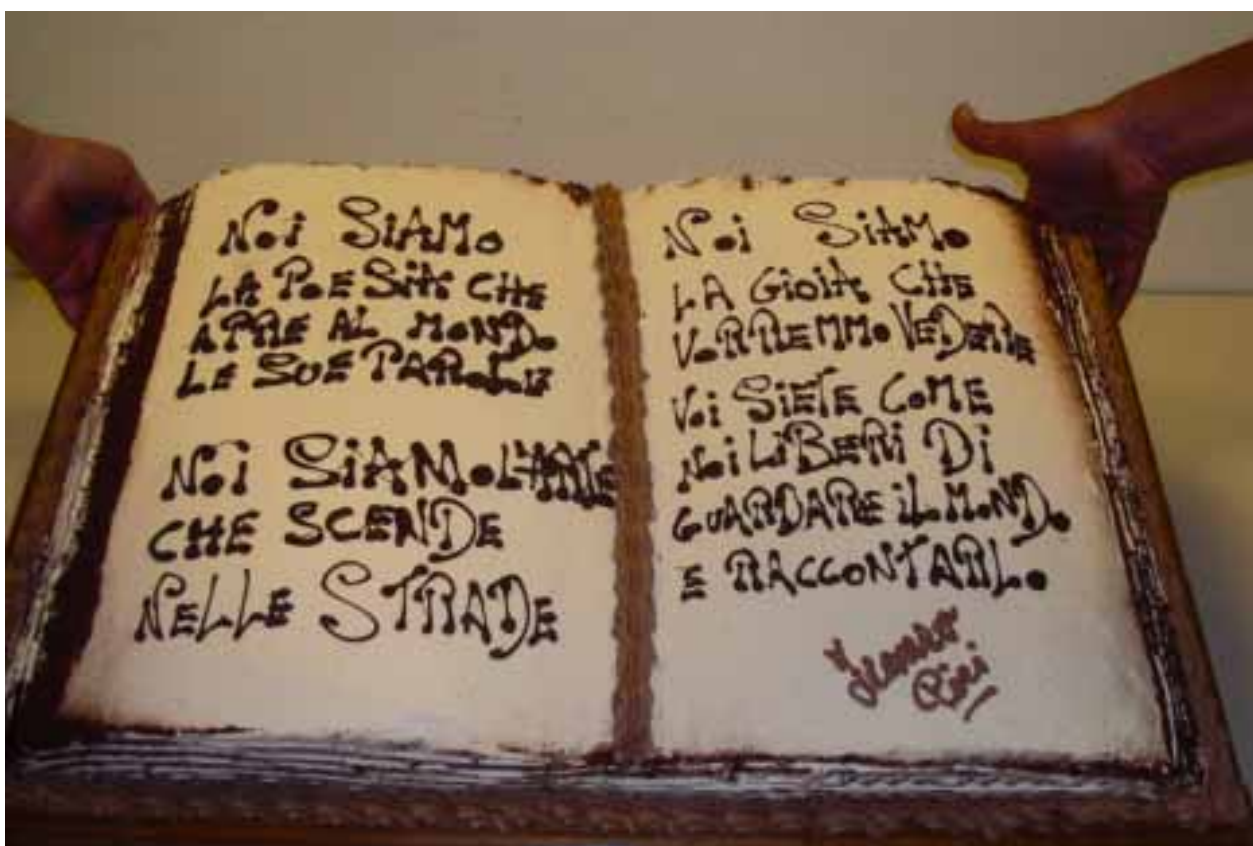 Noi SiAMo
LA PoESiA CHE
APRE AL MONDo
LE SUE PARoLE
Noi SiAMo L'ARTE
CHE SCENDE
NELLE STRADE
Noi SiAMo
LA GiOiA CHE
VoRREMMO VEDERE
Voi SiETE CoME
Noi LiBERi Di
GUARDARE iL MoNDo
E RACCONTARLo